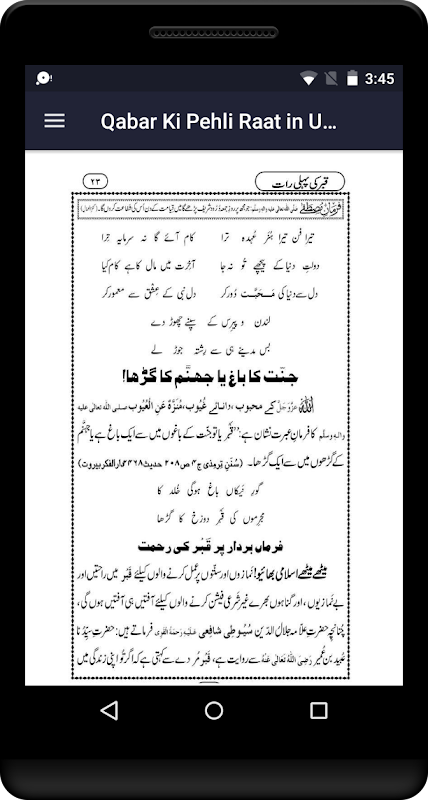 3:45
Qabar Ki Pehli Raat in U...
٢٣
قبر کی پہلی رات
فرمانِ مصطفےٰ صلی اللہ تعالیٰ علیہ والہٖ وسلم: جو مجھ پر روزِ جمعہ دُرُود شریف پڑھے گا میں قیامت کے دن اُس کی شفاعت کروں گا۔
تیرا فن تیرا ہُنَر عُہدہ تِرا کام آئے گا نہ سرمایہ تِرا
دولتِ دنیا کے پیچھے تُو نہ جا آخِرت میں مال کا ہے کام کیا
دل سے دنیا کی مَحَبَّت دُور کر دل نبی کے عِشق سے معمور کر
لندن و پیرس کے سپنے چھوڑ دے
بس مدینے ہی سے رشتہ جوڑ لے
جنّت کا باغ یا جہنَّم کا گڑھا!
اللہ عزوجل کے محبوب، دانائے غُیُوب، مُنَزَّہٌ عَنِ الْعُیُوب صلی اللہ تعالیٰ علیہ
والہٖ وسلم کا فرمانِ عبرت نشان ہے: "قَبْر یا تو جنّت کے باغوں میں سے ایک باغ ہے یا جہنَّم
کے گڑھوں میں سے ایک گڑھا۔ (سُنَنِ تِرمِذی ج٤ ص٢٠٨ حدیث ٢٤٦٨ دارالفکر بیروت)
گورِ نیکاں باغ ہوگی خُلد کا
مجرموں کی قَبْر دوزخ کا گڑھا
فرماں بردار پر قَبْر کی رحمت
میٹھے میٹھے اسلامی بھائیو! نَمازوں اور سنّتوں پر عمل کرنے والوں کیلئے قَبْر میں راحتیں اور
بے نمازیوں، اور گناہوں بھرے غیر شرعی فیشن کرنے والوں کیلئے آفتیں ہی آفتیں ہوں گی،
چُنانچِہ حضرتِ علّامہ جلالُ الدّین سُیُوطی شافعی علیہ رحمۃ اللہ القوی فرماتے ہیں: حضرتِ سیِّدُنا
عُبید بن عُمیر رَضِیَ اللہُ تَعَالٰی عَنْہُ سے روایت ہے، قَبْر مُردے سے کہتی ہے کہ اگر تُو اپنی زندگی میں